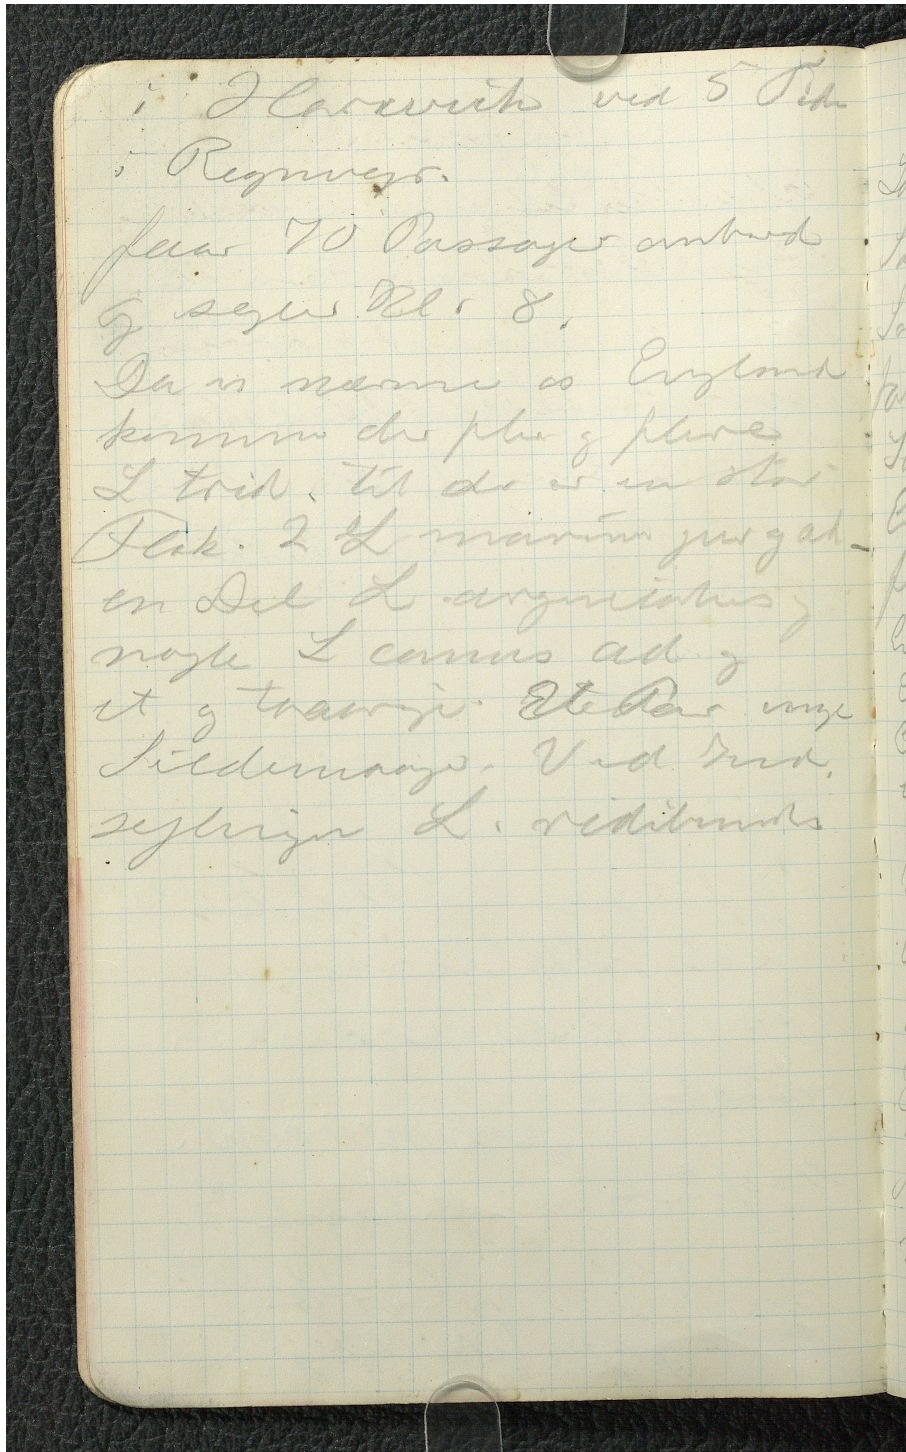 i Harwich ved 5 Tide
i Regnvejr.
faar 70 Passager ombord
og sejler Kl. 8.
Da vi nærme os England
komme der flere og flere
L trid. til der er en stor
Flok. 2 L marinus juv og ad.
en Del L argentatus og
nogle L canus ad og
et og toaarige. Et Par unge
Sildemaager. Ved Ind.
sejlingen L. ridibundus